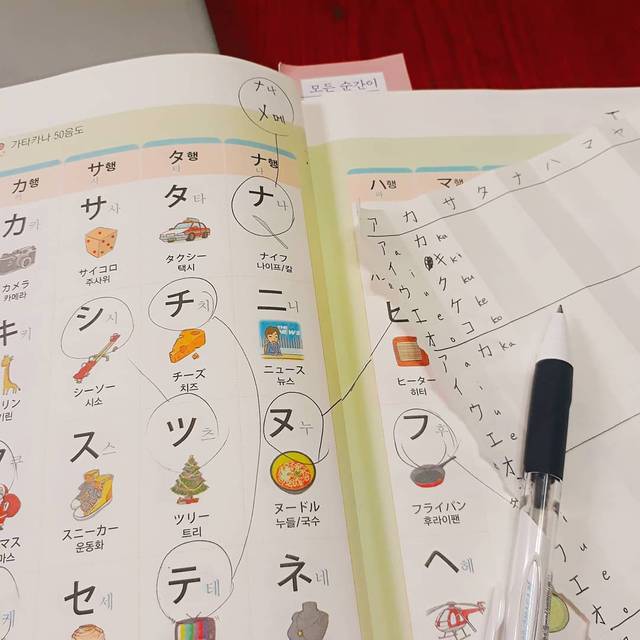 모든 순간이
가타카나 50음도
ナ 나
メ 메
カ행
サ행
タ행
ナ행
ハ행
マ행
カ 카
サ 사
タ 타
ナ 나
カメラ
카메라
サイコロ
주사위
タクシー
택시
ナイフ
나이프/칼
キ 키
シ 시
チ 치
ニ 니
ヒ
リン
기린
シーソー
시소
チーズ
치즈
ニュース
뉴스
ヒーター
히터
ス 스
ツ 츠
ヌ 누
フ 후
マス
마스
スニーカー
운동화
ツリー
트리
ヌードル
누들/국수
フライパン
후라이팬
케
セ 세
テ 테
ネ 네
ヘ 헤
ア カ サ タ ナ ハ マ ヤ
ア a カ ka
イ i キ ki
ウ u ク ku
エ e ケ ke
オ o コ ko
ア a カ ka
イ i
ウ u
エ e
オ
エ e
オ o